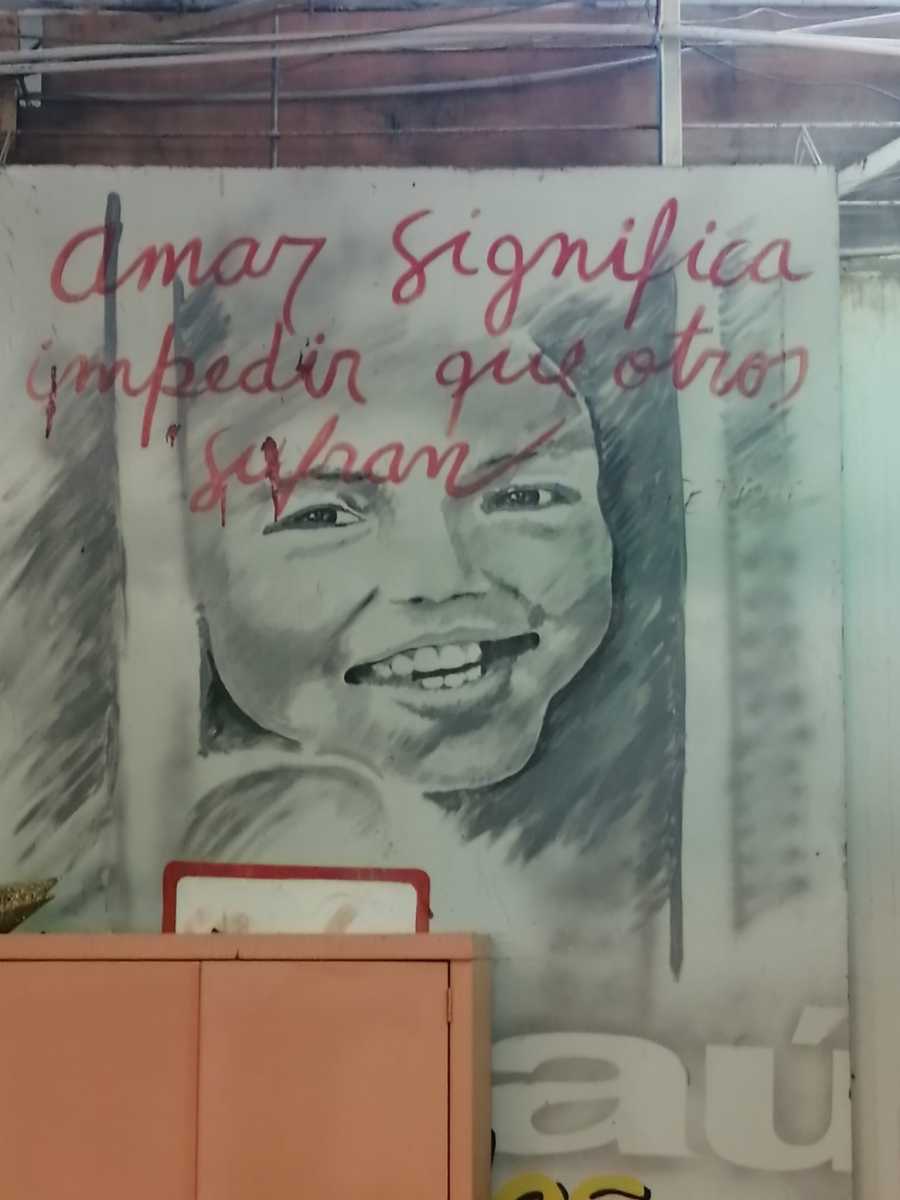 Amar significa
impedir que otros
sufran
aú